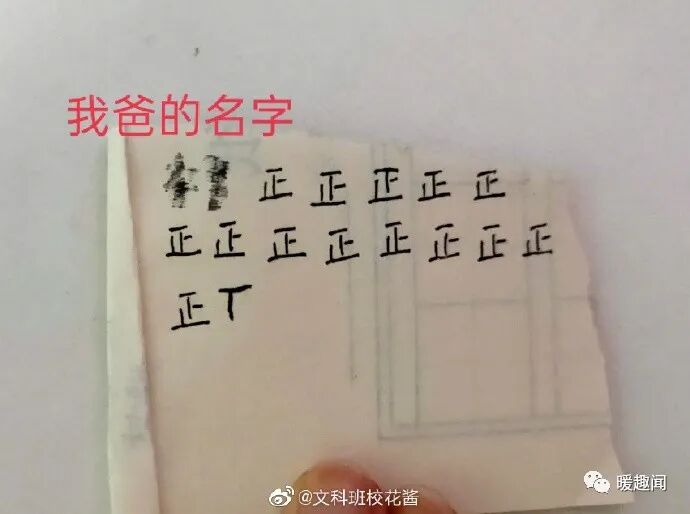 我爸的名字
正正正正正
正正正正正正正正
正丅
@文科班校花酱
暖趣闻